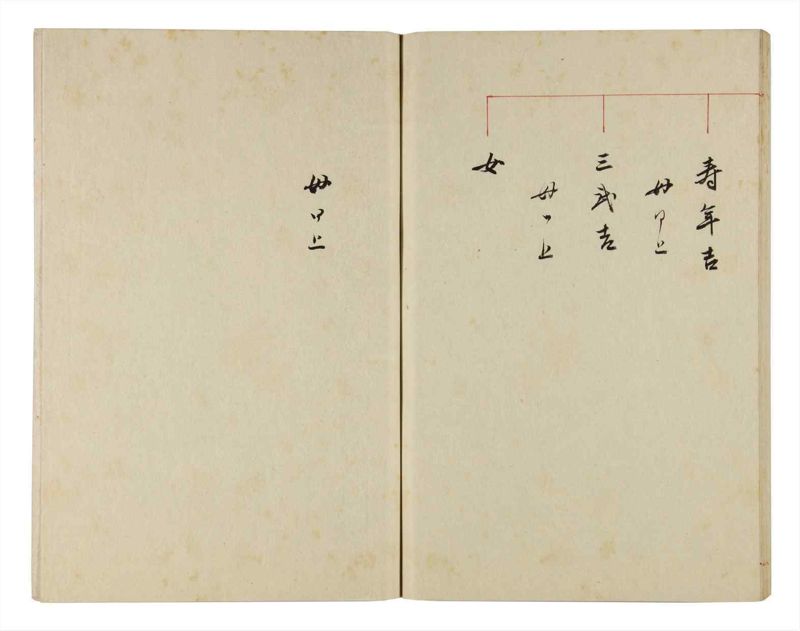 寿年吉
母同上
三武吉
母同上
女
母同上